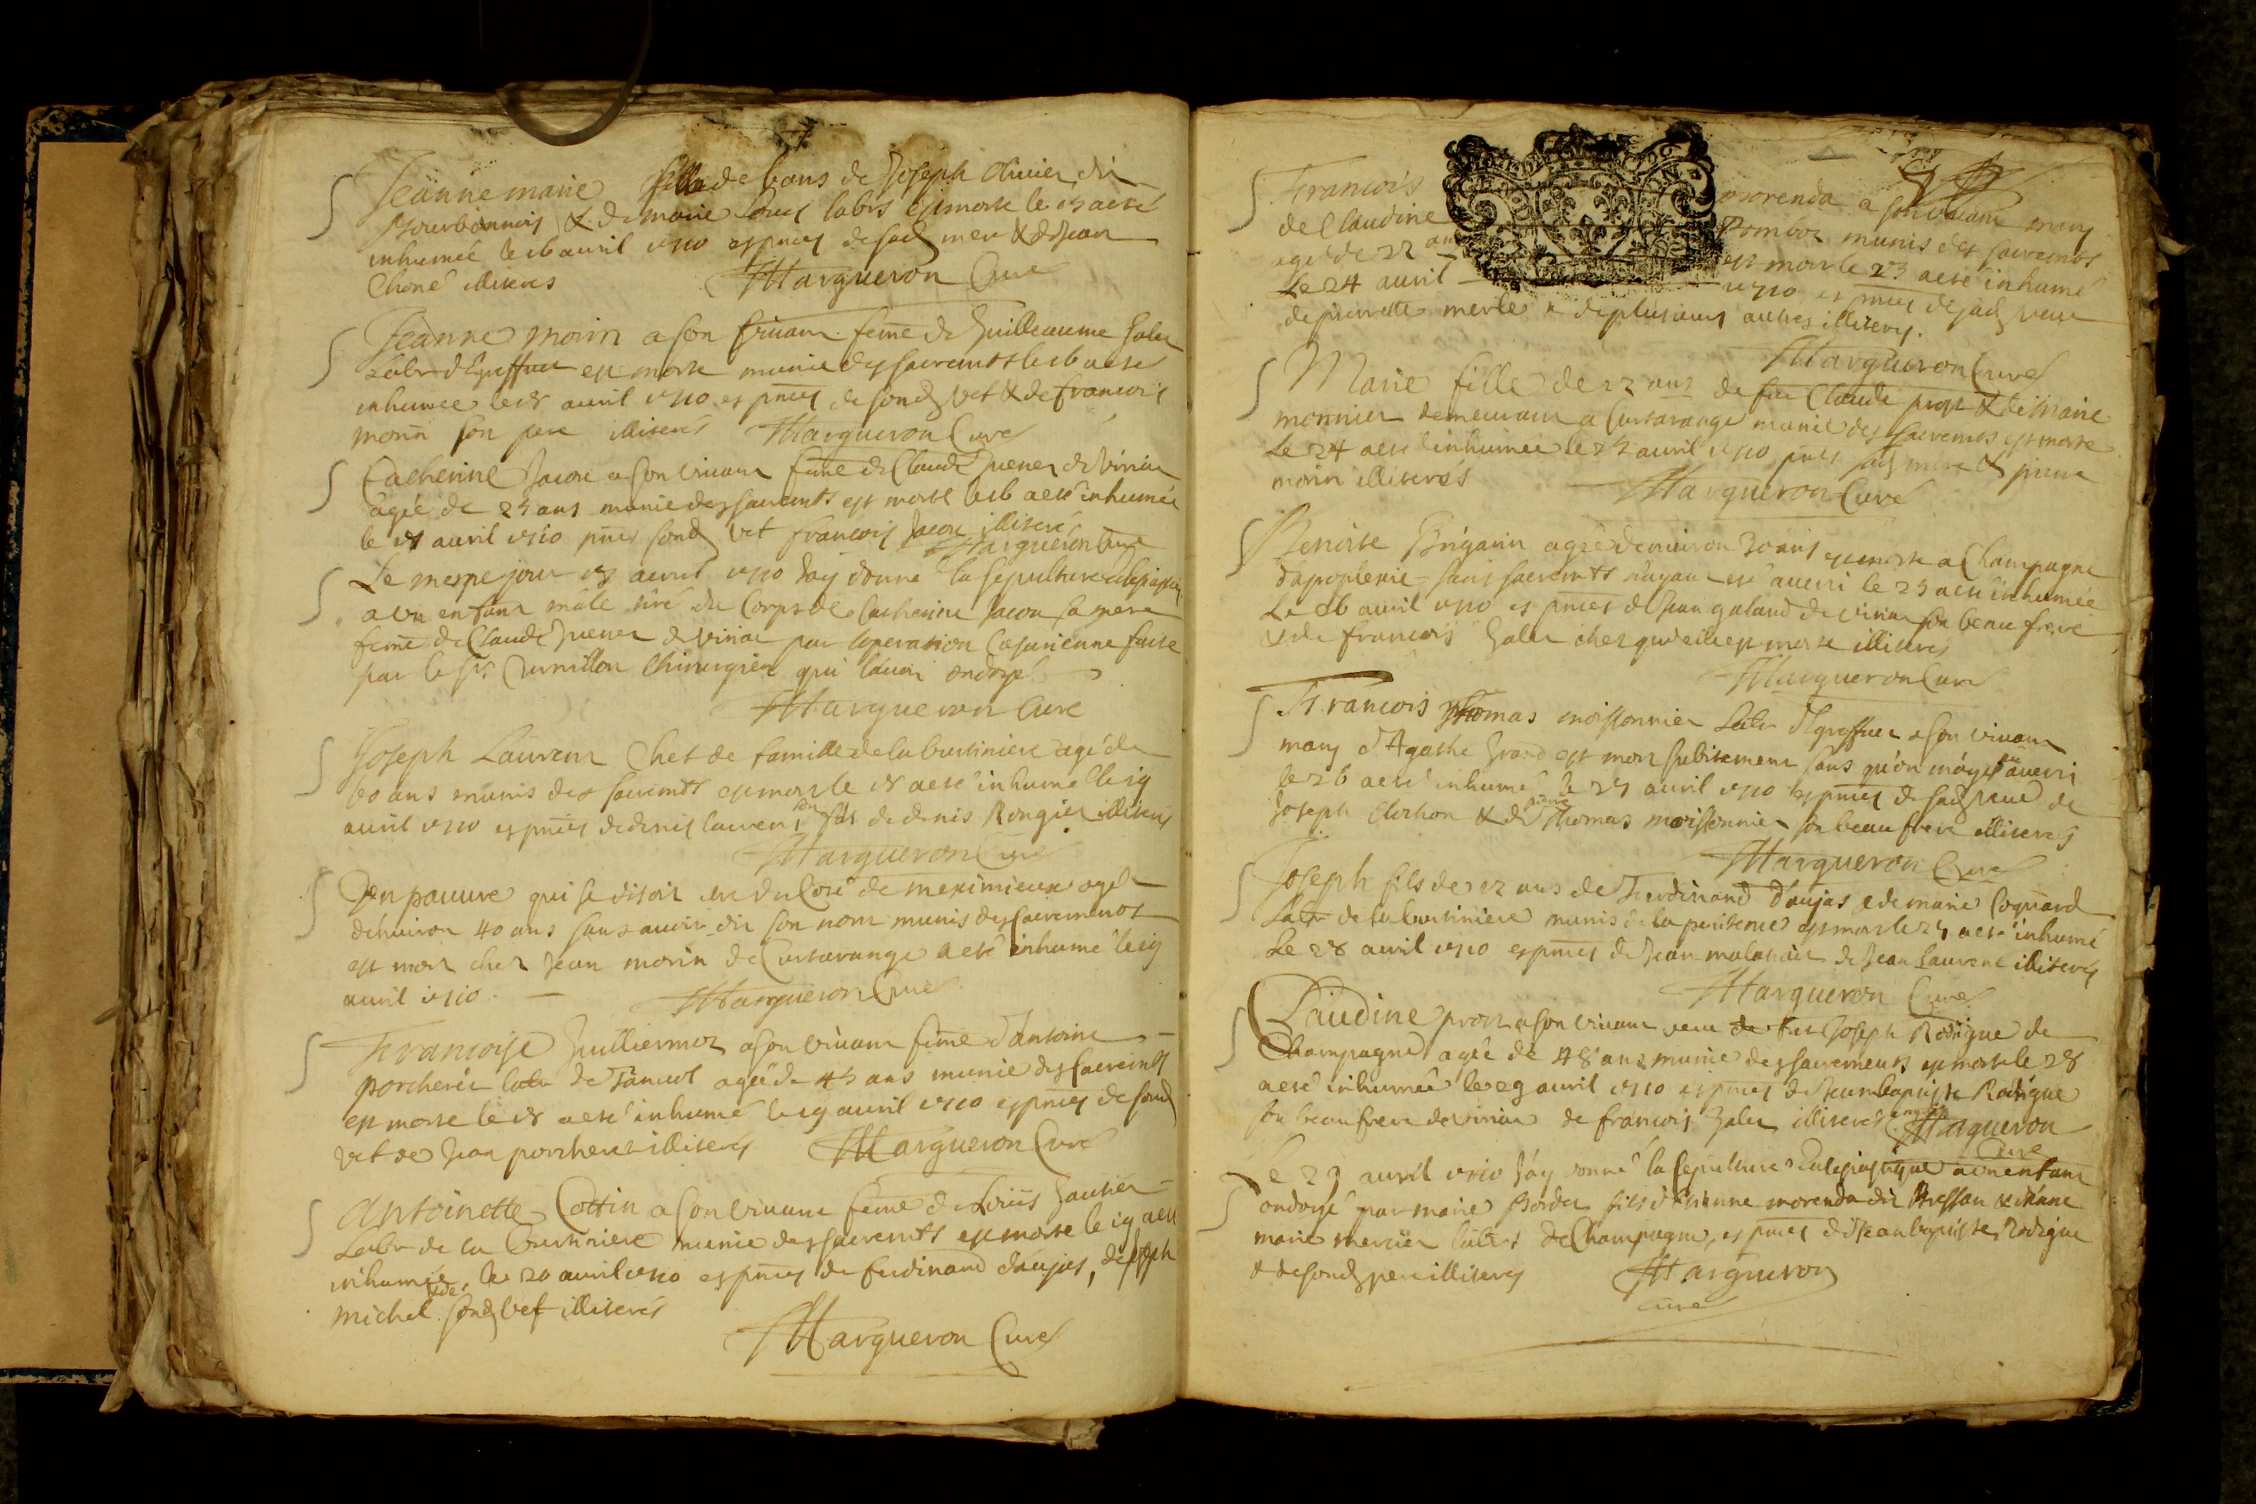 Jeanne marie fille de 6 ans de Joseph Olivier dit
Bourbonnois & de marie Louis labrs est morte le 15 a eté
inhumée le 16 avril 1710 es pnces de sad mere & de Jean
Choné illiterés Margueron Curé
Jeanne morin a son vivant feme de Guilleaume Galer
Labr d'Egreffues est morte munie des sacremts le 16 a eté
inhumee le 18 avril 1710 es pnces de sond vet & de francois
morin son pere illiterés Margueron Curé
Catherine Jacou a son vivant feme de Claude Juenez de Viriat
agée de 25 ans munie des sacremts est morte le 16 a eté inhumée
le 18 avril 1710 pntes sond vet francois Jacou illiterés
Margueron Curé
Le mesme jour 18 avril 1710 Jay donné la sepulture
a un enfant mâle tiré du Corps de Catherine Jacou sa mere
feme de Claude Juenez de viriat par l'operation Cesarienne faite
par le Sr. Curnillon Chirurgien qui l'avoit ondoyé
Margueron Curé
Joseph Laurent Chef de famille de la burtiniere agé de
60 ans munis des sacremts est mort le 18 a eté inhumé le 19
avril 1710 es pnces de denis laurent son fils de denis Rongier illiterés
Margueron Curé
Un pauvre qui se disoit etre du Coté de meximieux agé
d'environ 40 ans sans avoir dit son nom munis des sacrements
est mort chez Jean morin de Curtarange a eté inhumé le 19
avril 1710. Margueron Curé
Francoise Guilliermoz a son vivant feme d'Antoine
porcheret labr de Tanvol agée de 45 ans munie des sacremts
est morte le 18 a eté inhumé le 19 avril 1710 es pnces de sond
vet de Jean porcheret illiterés Margueron Curé
Antoinette Cottin a son vivant feme de Loüis Gautier
Labr de la Burtiniere munie des sacremts est morte le 19 a eté
inhumée, le 20 avril 1710 es pnces de ferdinand d'aujas, de Joseph
michel & de sond vet illiterés
Margueron Curé
Francois morenda a son vivant mary
de Claudine Pomboz munis des sacremts
agé de 22 ans est mort le 23 a eté inhumé
Le 24 avril 1710 es pnces de sad veuve
de pierrette merle & de plusieurs autres illiterés.
Margueron Curé
Marie fille de 22 ans de feu Claude prost & de Marie
monnier demeurant a Curtarange munie des sacremts est morte
Le 24 a eté inhumée le 25 avril 1710 pntes sad mere & pierre
morin illiterés Margueron Curé
Benoite Brigatin agée d'environ 30 ans est morte a Champagne
d'apoplexie sans sacremts n'ayant eté averti le 25 a eté inhumée
Le 26 avril 1710 es pnces de Jean galand de viriat son beau frere
& de francois Galer chez qui elle est morte illiterés
Margueron Curé
Francois Thomas moissonnier Labr d'Egreffues a son vivant
mary d'Agathe Grand est mort subitement sans qu'on m'aye averti
le 26 a eté inhumé le 27 avril 1710 es pnces de sad veuve de
Joseph Clochon & de pierre Thomas moissonnier son beau frere illiterés
Margueron Curé
Joseph fils de 22 ans de Ferdinand d'aujas & de marie Cognard
Labr de la burtiniere munis de la penitence est mort le 27 a eté inhumé
Le 28 avril 1710 es pnces de Jean malatier de Jean Laurent illiterés
Margueron Curé
Claudine prost a son vivant veuve de feu Joseph Rodigue de
Champagne agée de 48 ans munie des sacrements est morte le 28
a eté inhumée le 29 avril 1710 es pnces de Jean baptiste Rodigue
son beau frere de viriat de francois Galer illiterés Margueron
Curé
Le 29 avril 1710 J'ay donné la sepulture Eclesiastique a un enfant
ondoyé par marie Bordet fils d'Etienne morenda dit Bressan &
marie mercier labrs de Champagne, es pnces de Jean baptiste Rodigue
& de sond pere illiterés Margueron
curé